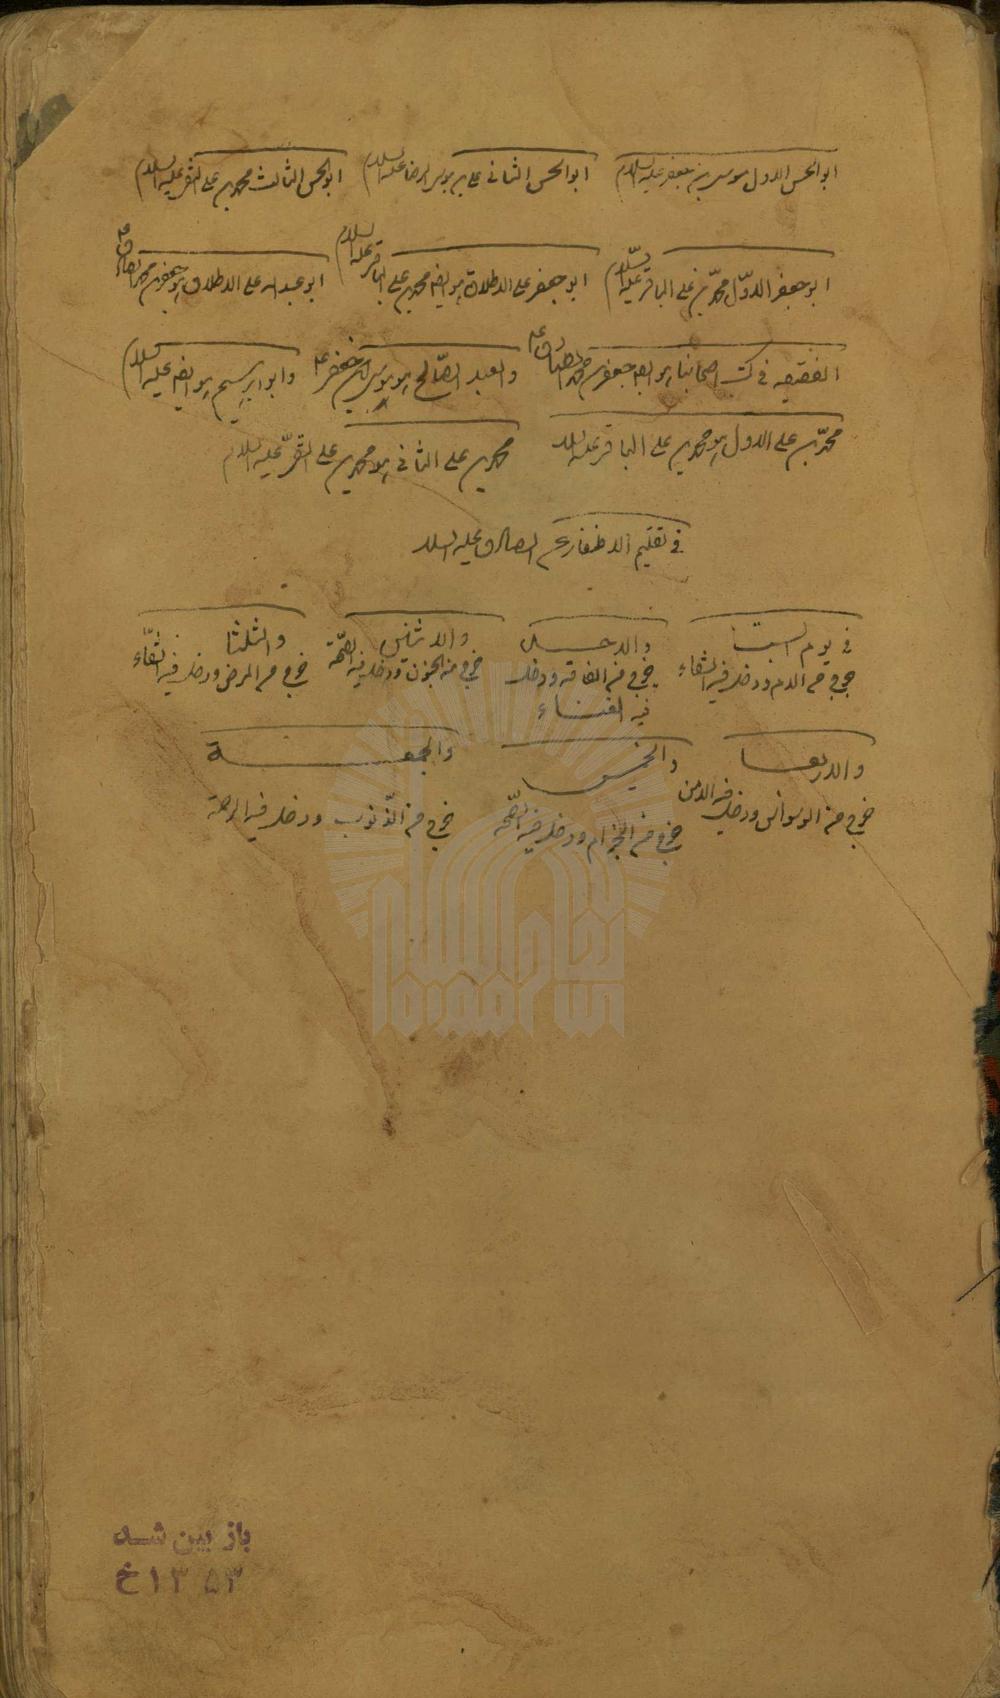 ابو الحسن الاول موسى بن جعفر عليه السلام ابو الحسن الثانى على بن موسى الرضا عليه السلام ابو الحسن الثالث محمد بن على النقى عليه السلام
ابو جعفر الاول محمّد بن على الباقر عليه السّلام ابو جعفر على الاطلاق هو ايضا محمد بن على الباقر عليه السلام ابو عبد الله على الاطلاق هو جعفر بن محمد الصادق ع
الفقيه فى كتب اصحابنا هو ايضا جعفر بن محمد الصادق ع والعبد الصّالح هو موسى بن جعفر ع وابو ابرهيم هو ايضا عليه السلام
محمّد بن على الاول هو محمد بن على الباقر عليه السلام محمد بن على الثانى هو محمد بن على التقىّ عليه السلام
فى تقليم الاظفار عن الصادق عليه السلام
فى يوم السبت والاحد والاثنين والثلثا
خرج من الداء ودخل فيه الشفاء خرج من الفاقة ودخل فيه الغناء خرج منه الجنون ودخل فيه الصّحّة خرج منه المرض ودخل فيه الشّفاء
والاربعا والخميس والجمعة
خرج منه الوسواس ودخل فيه الامن خرج منه الجذام ودخل فيه الصّحّة خرج منه الذّنوب ودخل فيه الرحمة
باز بين شد
١٣٥٣ خ